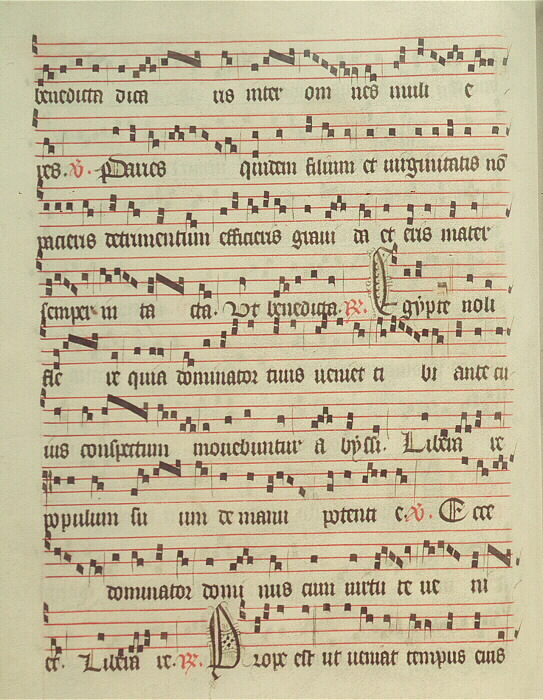 benedicta dica ris inter om nes muli e
res. V. Paries quidem filium et virginitatis nō
pacieris detrimentum efficieris gravi da et eris mater
semper in ta cta. Ut benedicta. R. Egypte noli
fle re quia dominator tuus veniet ti bi ante cu
ius conspectum movebuntur a byssi. Libera re
populum su um de manu potenti e. V. Ecce
dominator domi nus cum virtu te ve ni
et. Libera re. R. Prope est ut veniat tempus eius